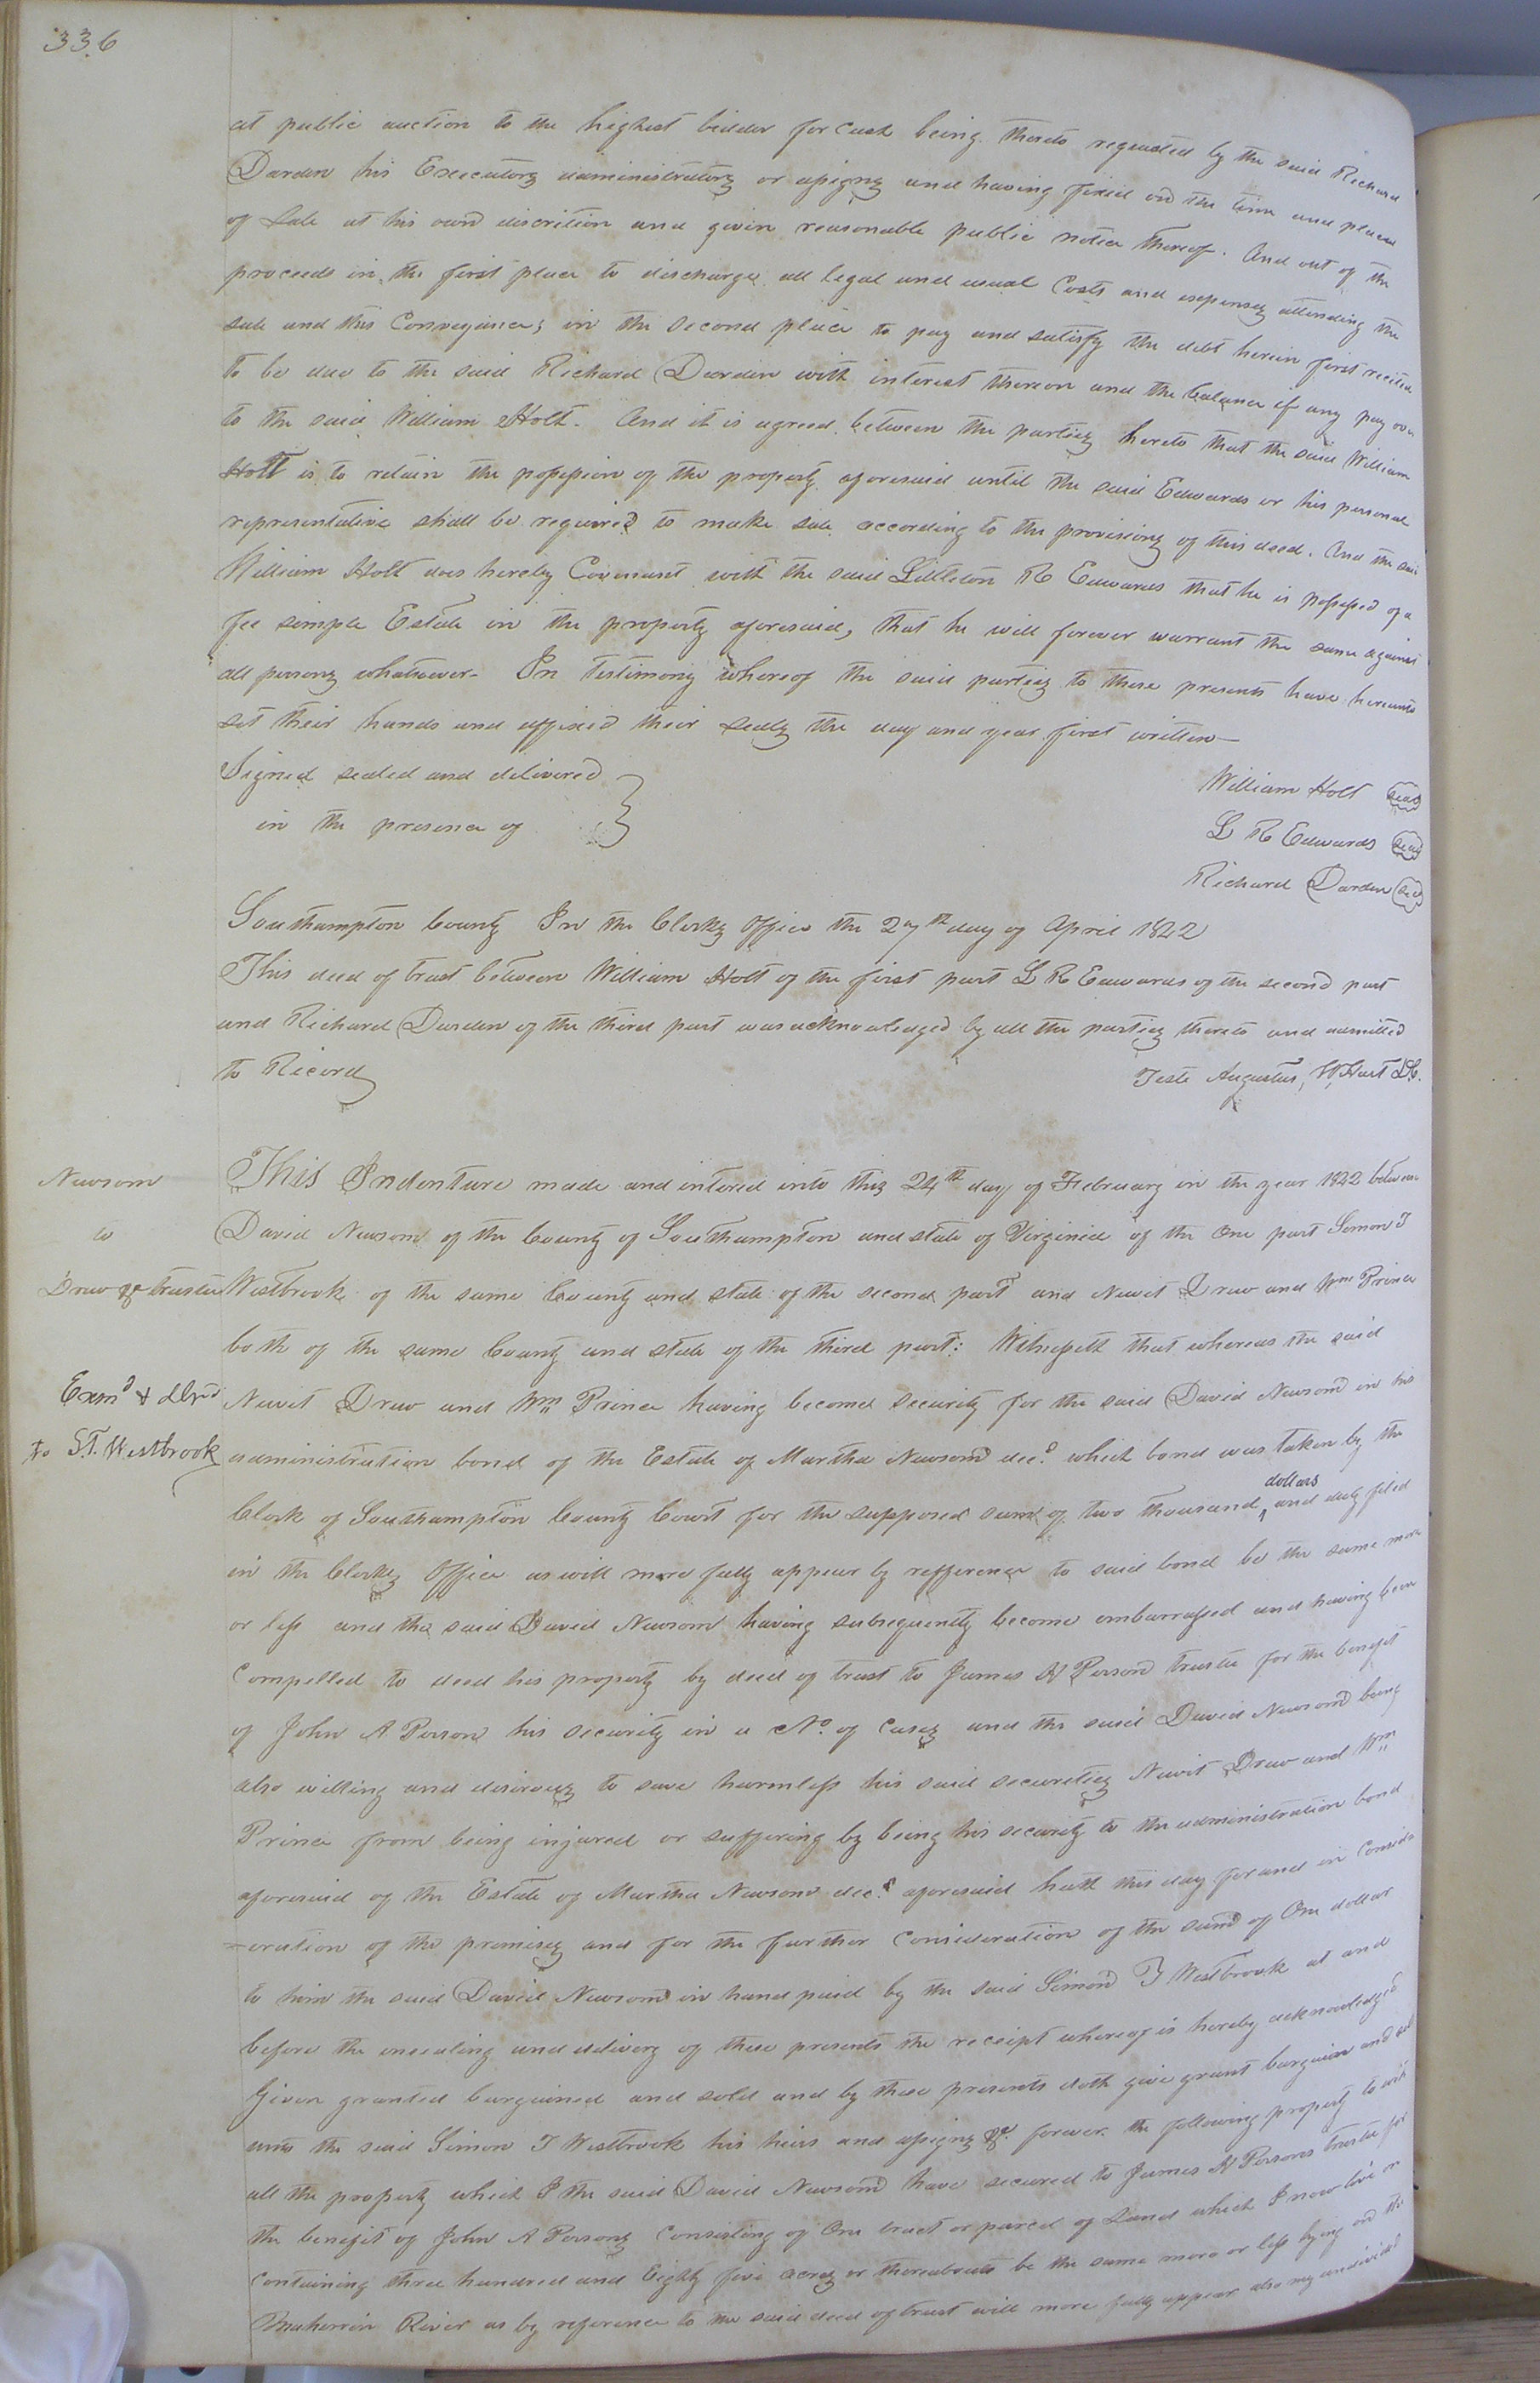 336
at public auction to the highest bidder for Cash being thereto requested by the said Richard
Darden his Executors administrators or assigns and having fixed on the time and place
of Sale at his own discretion and given reasonable public notice thereof. And out of the
proceeds in the first place to discharge all legal and usual Costs and expenses attending the
sale and this Conveyance; in the second place to pay and satisfy the debt herein first recited
to be due to the said Richard Darden with interest thereon and the balance if any pay over
to the said William Holt. And it is agreed between the parties hereto that the said William
Holt is to retain the possession of the property aforesaid until the said Edwards or his personal
representative shall be required to make sale according to the provisions of this deed. And the said
William Holt does hereby Covenant with the said Littleton R Edwards that he is possessed of a
fee simple Estate in the property aforesaid, that he will forever warrant the same against
all persons whatsoever. In Testimony whereof the said parties to these presents have hereunto
set their hands and affixed their seals the day and year first written—
Signed sealed and delivered
in the presence of
William Holt Seal
L R Edwards Seal
Richard Darden Seal
Southampton County In the Clerks Office the 27th day of April 1822
This deed of trust between William Holt of the first part L R Edwards of the second part
and Richard Darden of the third part was acknowledged by all the parties thereto and admitted
to Record
Teste Augustus W Hart DC.
Newsom
to
Drew &c trustee
Exmd & dlvd
to S.T. Westbrook
This Indenture made and entered into this 24th day of February in the year 1822 between
David Newsom of the County of Southampton and state of Virginia of the One part Simon T
Westbrook of the same County and state of the second part and Newit Drew and Wm Prince
both of the same County and state of the third part: Witnesseth that whereas the said
Newit Drew and Wm Prince having become security for the said David Newsom in his
administration bond of the Estate of Martha Newsom decd. which bond was taken by the
Clerk of Southampton County Court for the supposed sum of two thousand dollars and duly filed
in the Clerks Office as will more fully appear by refference to said bond be the same more
or less and the said David Newsom having subsequently become embarrassed and having been
Compelled to deed his property by deed of trust to James H Person trustee for the benefit
of John A Person his security in a No. of cases and the said David Newsom being
also willing and desirous to save harmless his said securities Newit Drew and Wm
Prince from being injured or suffering by being his security to the administration bond
aforesaid of the Estate of Martha Newsom decd. aforesaid hath this day for and in Consid
=eration of the premises and for the further Consideration of the sum of One dollar
to him the said David Newsom in hand paid by the said Simon T Westbrook at and
before the ensealing and delivery of these presents the receipt whereof is hereby acknowledged
Given granted bargained and sold and by these presents doth give grant bargain and sell
unto the said Simon T Westbrook his heirs and assigns &c. forever the following property to wit
all the property which I the said David Newsom have secured to James H Persons trustee for
the benefit of John A Persons Consisting of One tract or parcel of Land which I now live on
containing three hundred and Eighty five acres or thereabouts be the same more or less lying on the
Meherrin River as by reference to the said deed of trust will more fully appear also my undivided